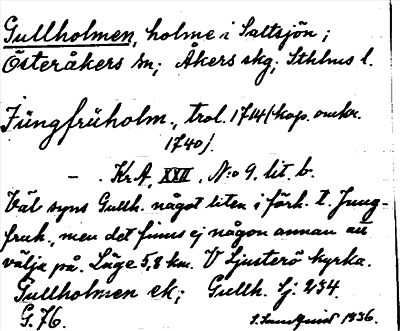 Gullholmen, holme i Saltsjön;
Österåkers sn; Åkers skg; Sthlms l.
Jüngfrüholm., trol. 1714 (kop. omkr.
1740).
— . Kr.A. XXII. N:o 9. lit. b.
Väl syns Gullh. något liten i förh. t. Jung-
fruh., men det finns ej någon annan att
välja på. Läge 5,8 km. V Ljusterö kyrka.
Gullholmen ek; Gullh. Sj: 234.
G. 76.
1936.